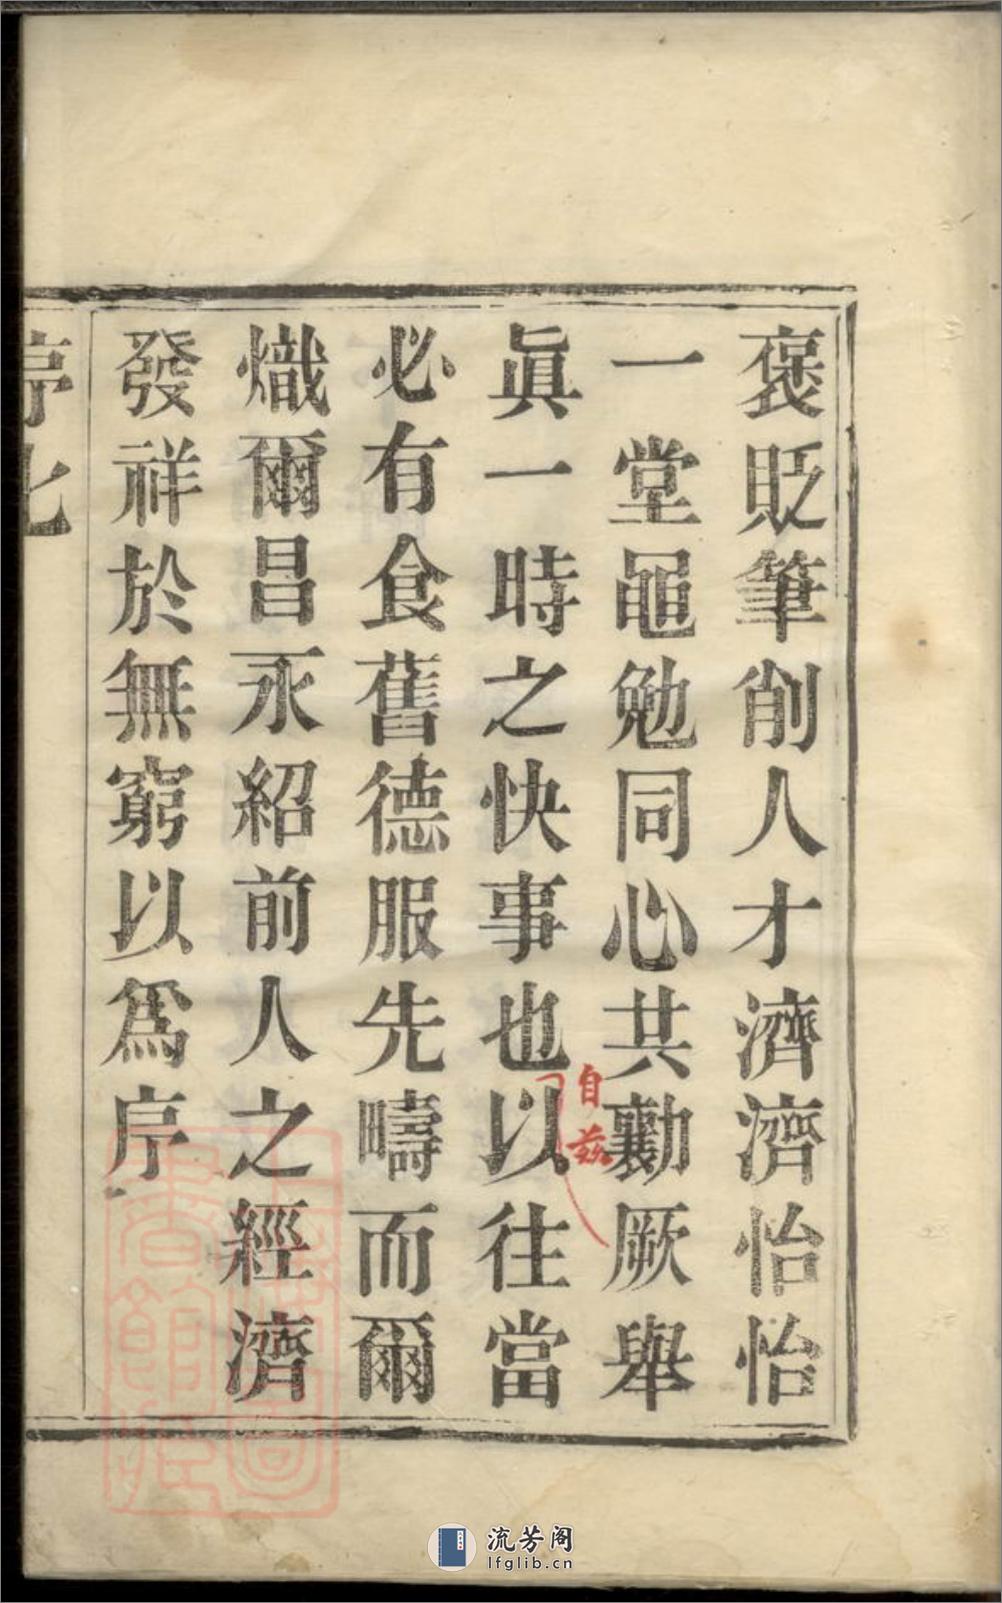 褒貶筆削人才濟濟怡怡
一堂黽勉同心共勷厥舉
眞一時之快事也以往當
自茲
必有食舊德服先疇而爾
熾爾昌永紹前人之經濟
發祥於無窮以爲序
流芳阁
lfglib.cn